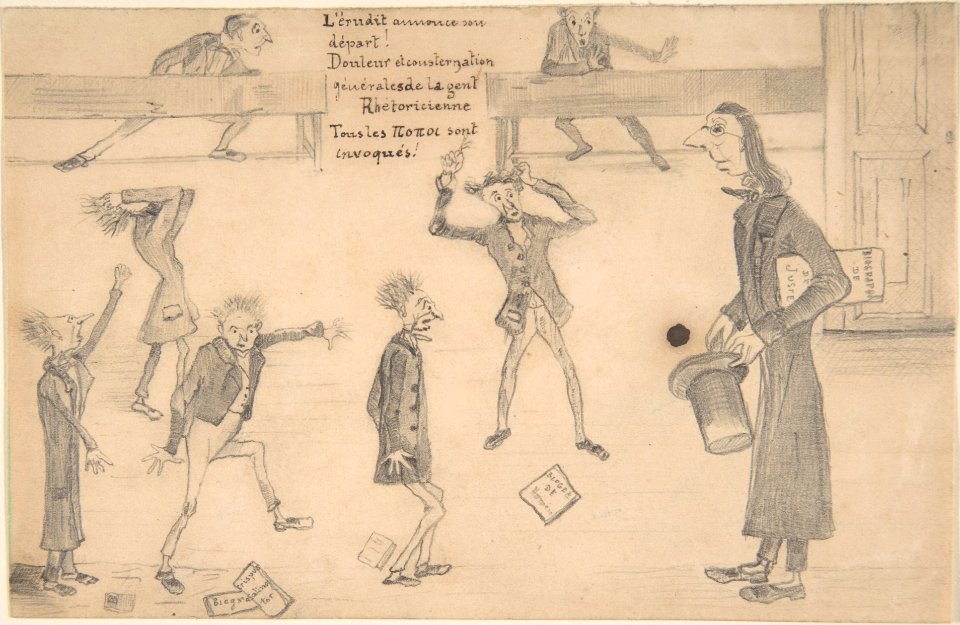 L'érudit annonce son
départ!
Douleur et consternation
générales de la gent
Rhétoricienne
Tous les Ποποι sont
invoqués!
BIOGRAPH
DE
DE
JUSTE
BIOGRA
DE
Biogr